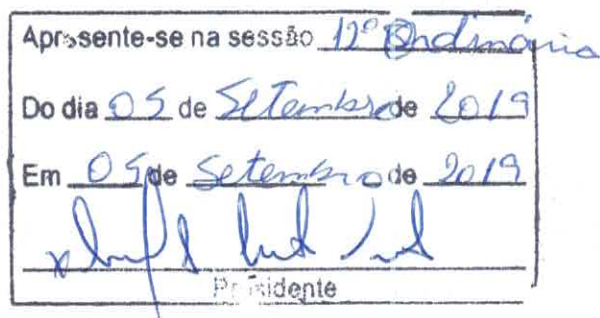 Apresente-se na sessão 12º Ordinária
Do dia 05 de Setembro de 2019
Em 05 de Setembro de 2019
Presidente